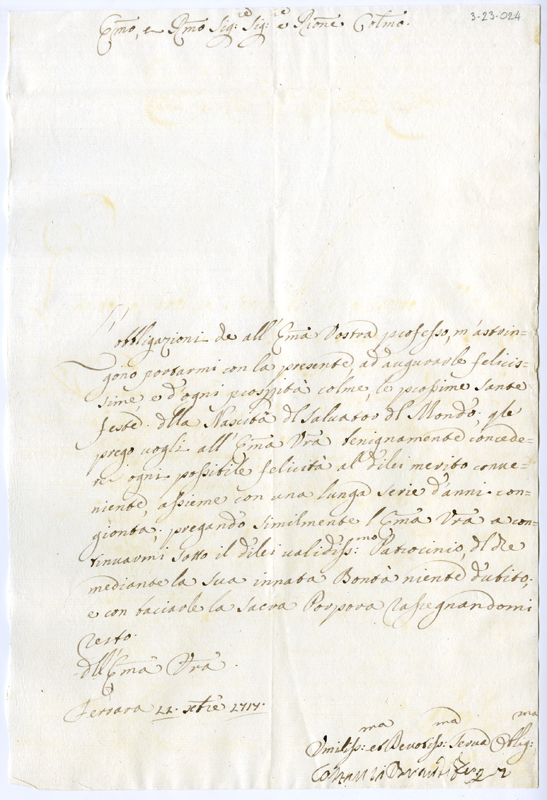 3-23-024
Emo, e Rmo Sig:re Sig:re e Prone Colmo.
L'obbligazioni che all'Emã Vostra professo, m'astrin-
gono portarmi con la presente, ad augurarle felicis-
sime e d'ogni prosperità colme, le prossime Sante
feste della Nascità del Salvator del Mondo. q.le
prego vogli all'Emã Vrã benignamente concede-
re ogni possibile felicità al di lei merito conve-
niente, assieme con una lunga serie d'anni con-
gionta; pregando similmente l'Emã Vrã a con-
tinuarmi sotto il di lei validiss:mo Patrocinio, del che
mediante la Sua innata Bontà niente dubito;
e con baciarle la Sacra Porpora rassegnandomi
resto.
Dell'Emã Vrã.
Ferrara 22. Xbre 1717.
Umiliss:ma et Devotiss:ma Serva Obblig:ma